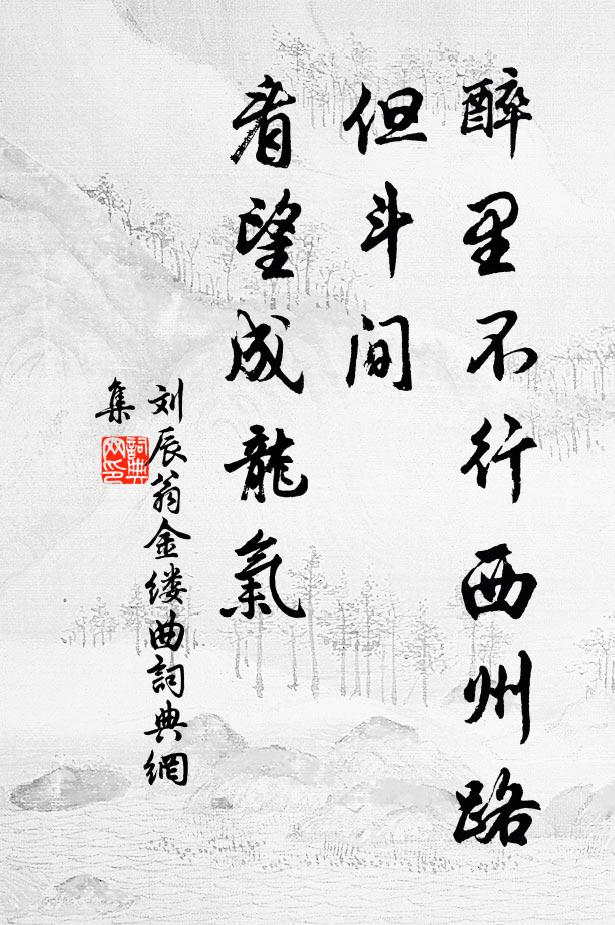 醉里不行西州路
但斗间
看望成龍氣
刘辰翁金缕曲詞典網
集
詞典網印